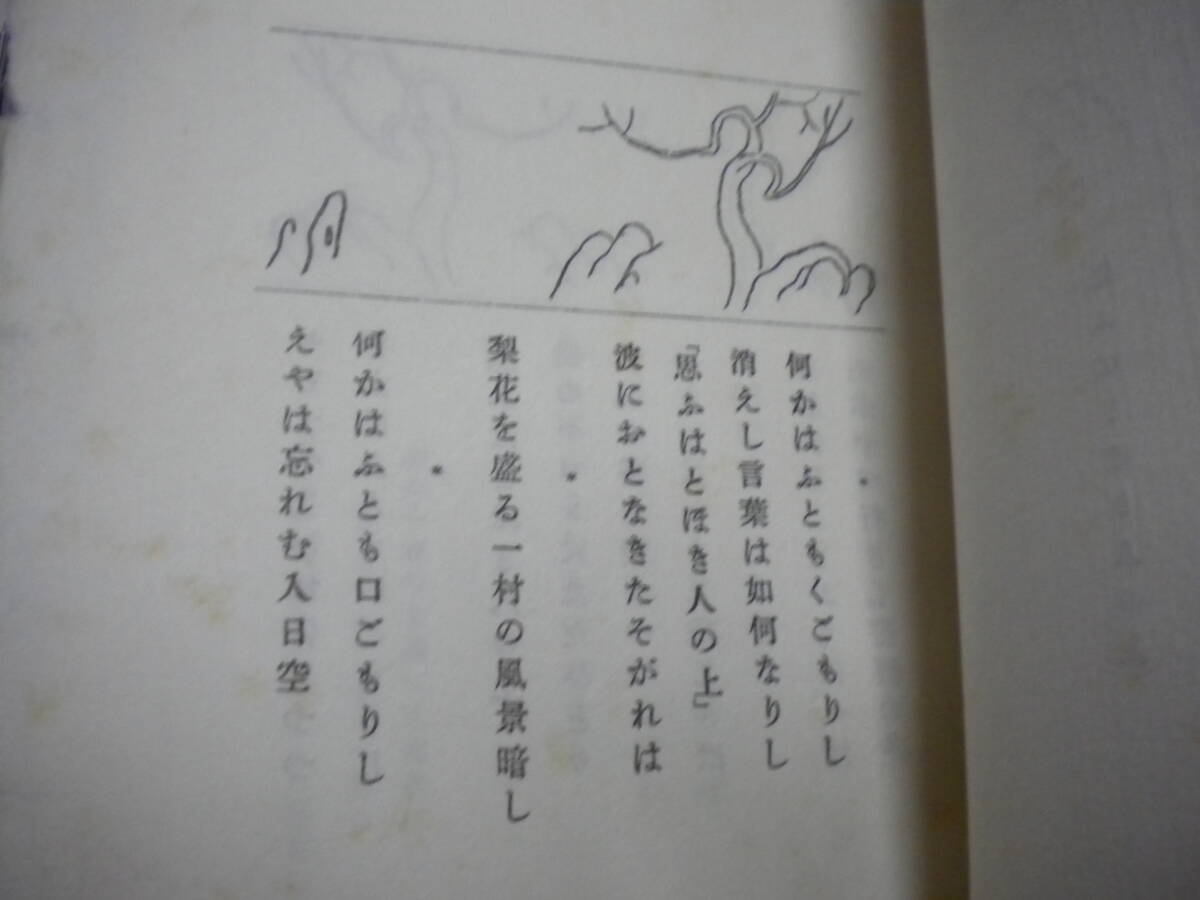 *
何かはふともくごもりし
消えし言葉は如何なりし
「思ふはとほき人の上」
波におとなきたそがれは
*
梨花を盛る一村の風景暗し
*
何かはふとも口ごもりし
えやは忘れむ入日空